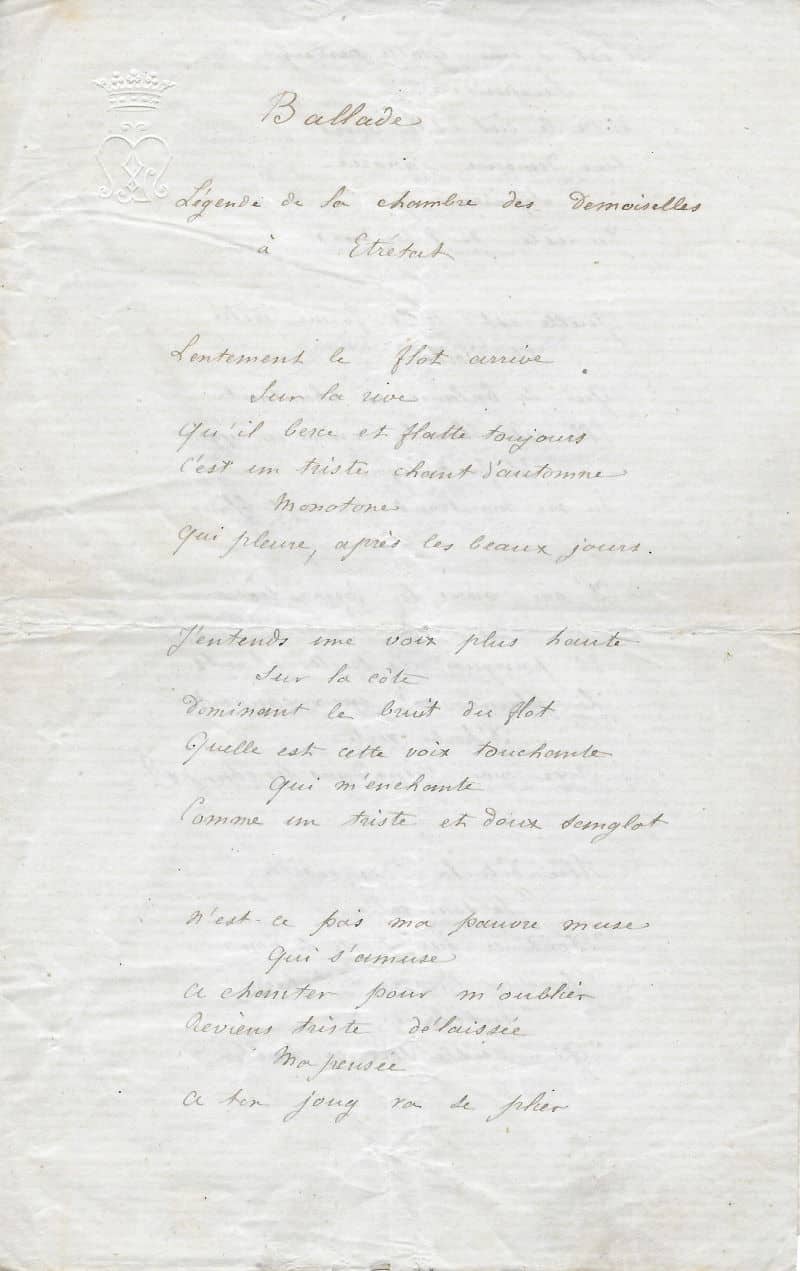 Ballade
Légende de la chambre des Demoiselles
à Etretat
Lentement le flot arrive
Sur la rive
Qu'il berce et flatte toujours
C'est un triste chant d'automne
Monotone
Qui pleure, après les beaux jours.
J'entends une voix plus haute
Sur la côte
Dominant le bruit du flot
Quelle est cette voix touchante
Qui m'enchante
Comme un triste et doux sanglot
N'est-ce pas ma pauvre muse
Qui s'amuse
A chanter pour m'oublier
Reviens triste délaissée
Ma pensée
A ton joug va se plier